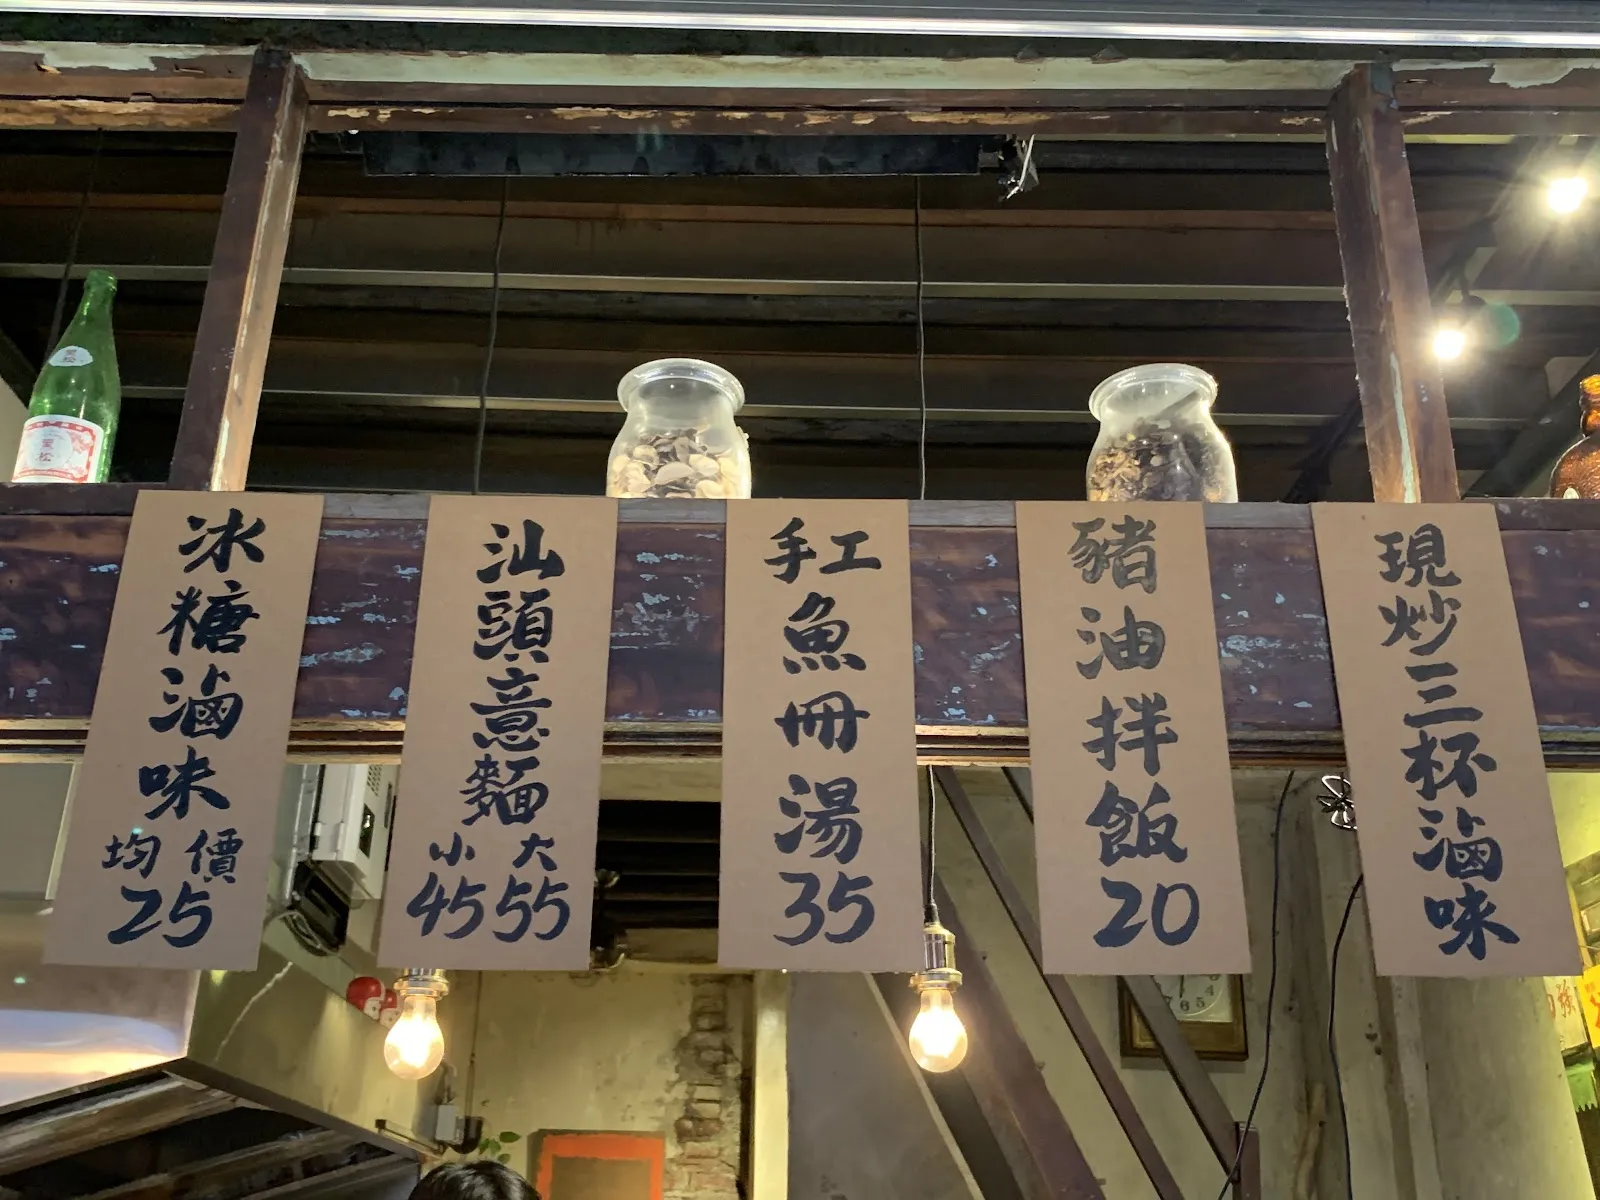 冰糖滷味
均價
25
汕頭意麵
小 大
45 55
手工魚冊湯
35
豬油拌飯
20
現炒三杯滷味
黑松
黑松